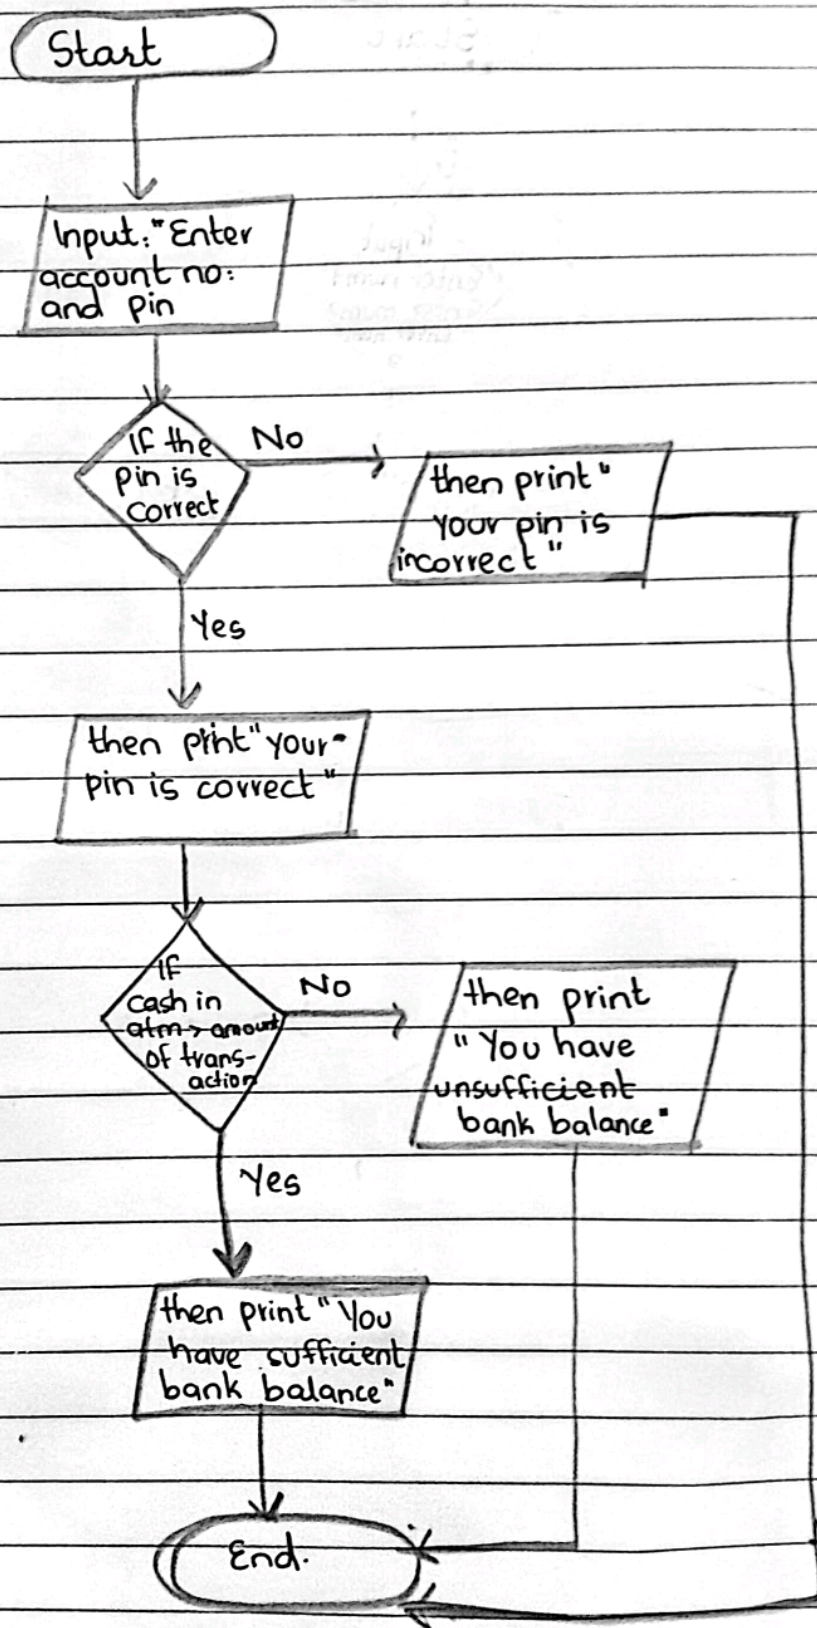 Start
Input:"Enter
account no:
and pin
if the
pin is
correct
No
then print "
your pin is
incorrect"
Yes
then print "your
pin is correct"
if
cash in
atm > amount
of trans-
action
No
then print
"You have
unsufficient
bank balance"
Yes
then print "You
have sufficient
bank balance"
End.